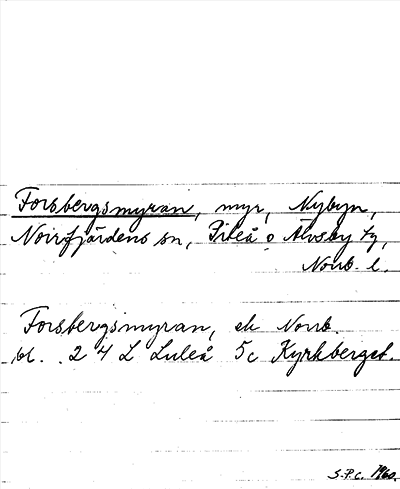 Forsbergsmyran, myr, Nybyn,
Norrfjärdens sn, Piteå o Älvsby tg,
Norrb. l.
Forsbergsmyran, ek Norrb.
bl. 24 L Luleå 5c Kyrkberget.
S.P.C. 1960.